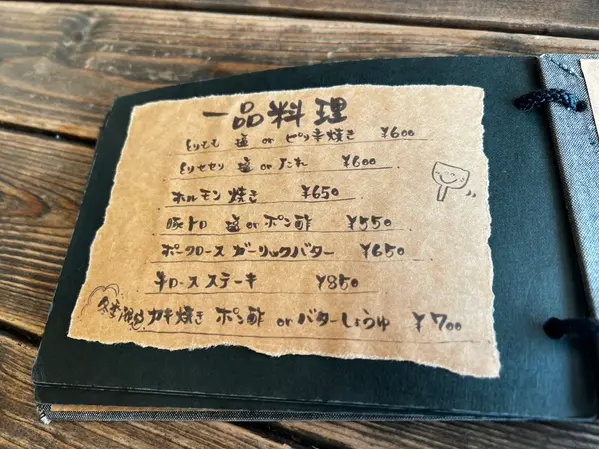 一品料理
とりもも 塩 or ピリ辛焼き ¥600
とりセセリ 塩 or たれ ¥600
ホルモン焼き ¥650
豚トロ 塩 or ポン酢 ¥550
ポークロース ガーリックバター ¥650
牛ロースステーキ ¥850
冬季限定 カキ焼き ポン酢 or バターしょうゆ ¥700